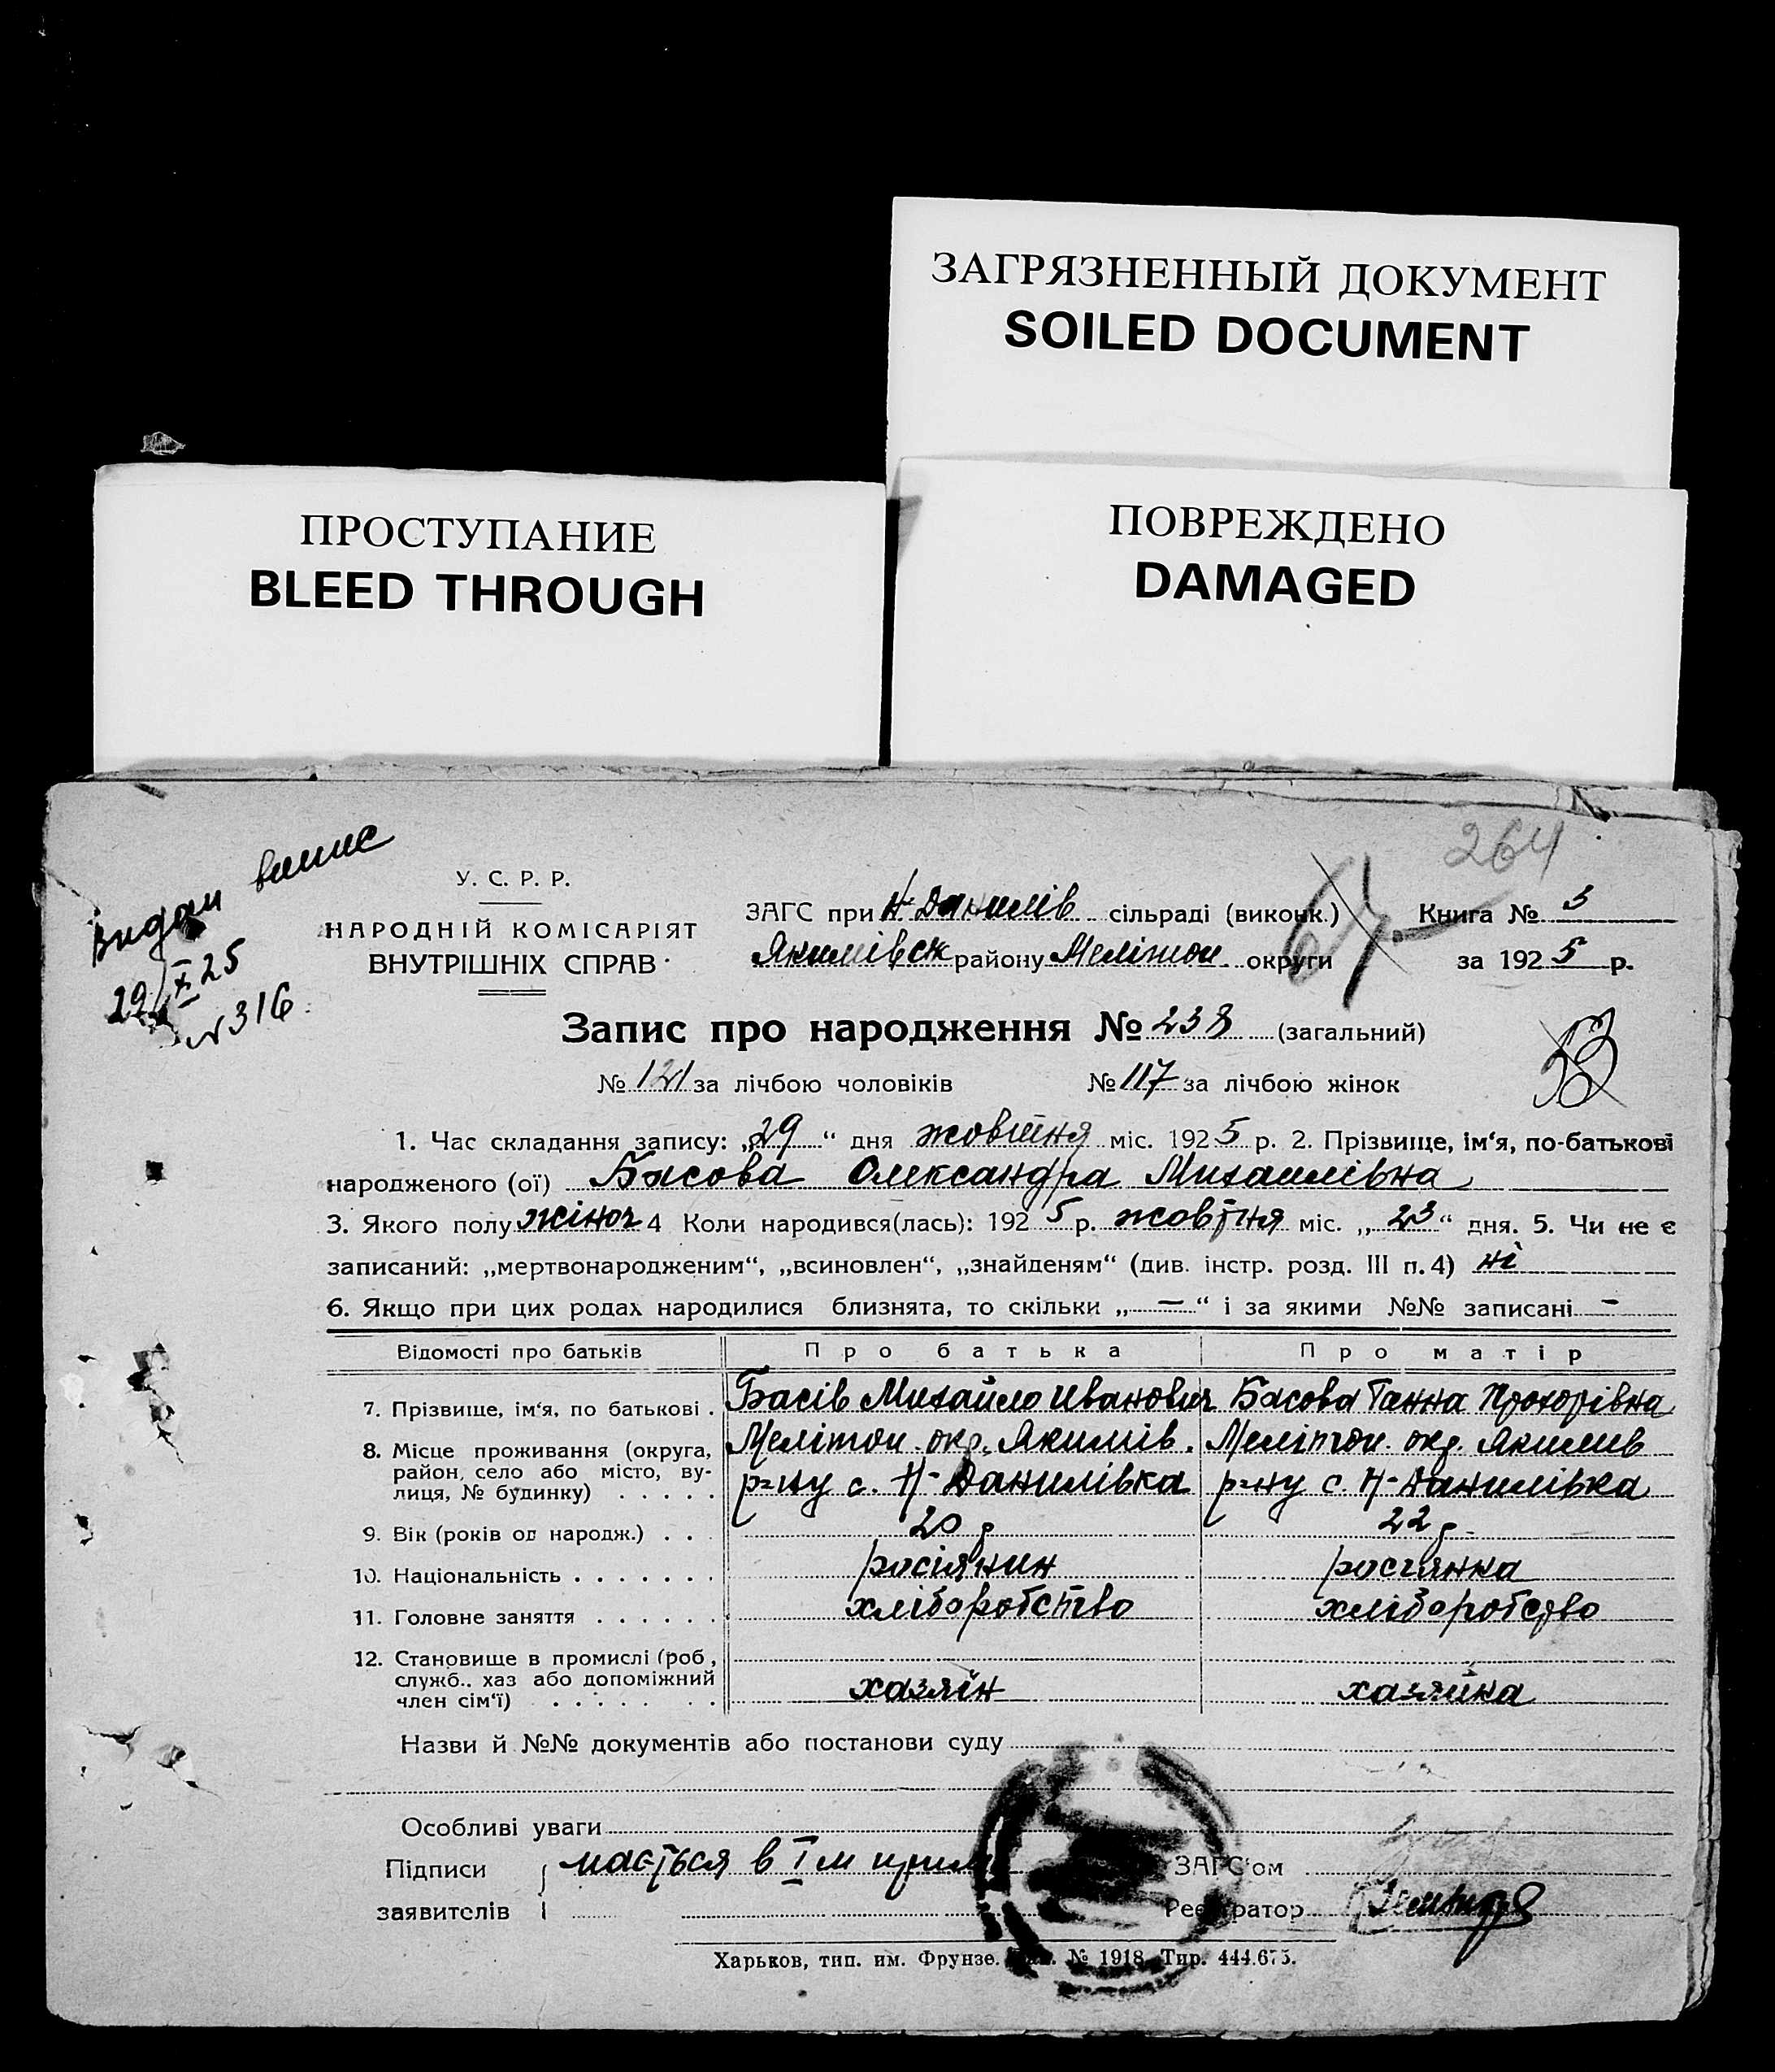 ЗАГРЯЗНЕННЫЙ ДОКУМЕНТ
SOILED DOCUMENT
ПРОСТУПАНИЕ
BLEED THROUGH
ПОВРЕЖДЕНО
DAMAGED
264
Видан випис
29/X 25
№ 316
У. С. Р. Р.
НАРОДНІЙ КОМІСАРІЯТ
ВНУТРІШНІХ СПРАВ
ЗАГС при Н-Данилів сільраді (виконк.)
Якимівськ району Мелітоп. округи
67
Книга № 3
за 1925 р.
Запис про народження № 238 (загальний)
№ 121 за лічбою чоловіків № 117 за лічбою жінок
53
1. Час складання запису: „29“ дня жовтня міс. 1925 р. 2. Прізвище, ім‘я, по-батькові
народженого (ої) Басова Олександра Михайлівна
3. Якого полу жіноч 4 Коли народився(лась): 1925 р. жовтня міс. „23“ дня. 5. Чи не є
записаний: „мертвонародженим“, „всиновлен“, „знайденям“ (див. інстр. розд. III п. 4) ні
6. Якщо при цих родах народилися близнята, то скільки „—“ і за якими №№ записані -
Відомості про батьків Про батька Про матір
7. Прізвище, ім‘я, по батькові . Басів Михайло Иванович Басова Ганна Прохорівна
8. Місце проживання (округа, Мелітоп. окр. Якимів. Мелітоп. окр. Якимив
район, село або місто, ву-
лиця, № будинку) . . . . . р-ну с. Н-Данилівка р-ну с. Н-Данилівка
9. Вік (років од народж.) . . 20 р 22 р.
10. Національність . . . . . . . росіянин росіянка
11. Головне заняття . . . . . . хліборобство хліборобство
12. Становище в промислі (роб,
служб.. хаз або допоміжний
член сім‘ї) . . . . . . . хазяїн хазяйка
Назви й №№ документів або постанови суду
Особливі уваги
Підписи мається в I м прим
заявителів
ЗАГС‘ом
Реєстратор
Харьков, тип. им. Фрунзе. № 1918 Тир. 444.675.